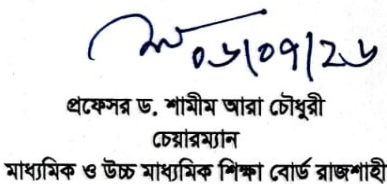 ০৬/০৭/২৬
প্রফেসর ড. শামীম আরা চৌধুরী
চেয়ারম্যান
মাধ্যমিক ও উচ্চ মাধ্যমিক শিক্ষা বোর্ড রাজশাহী